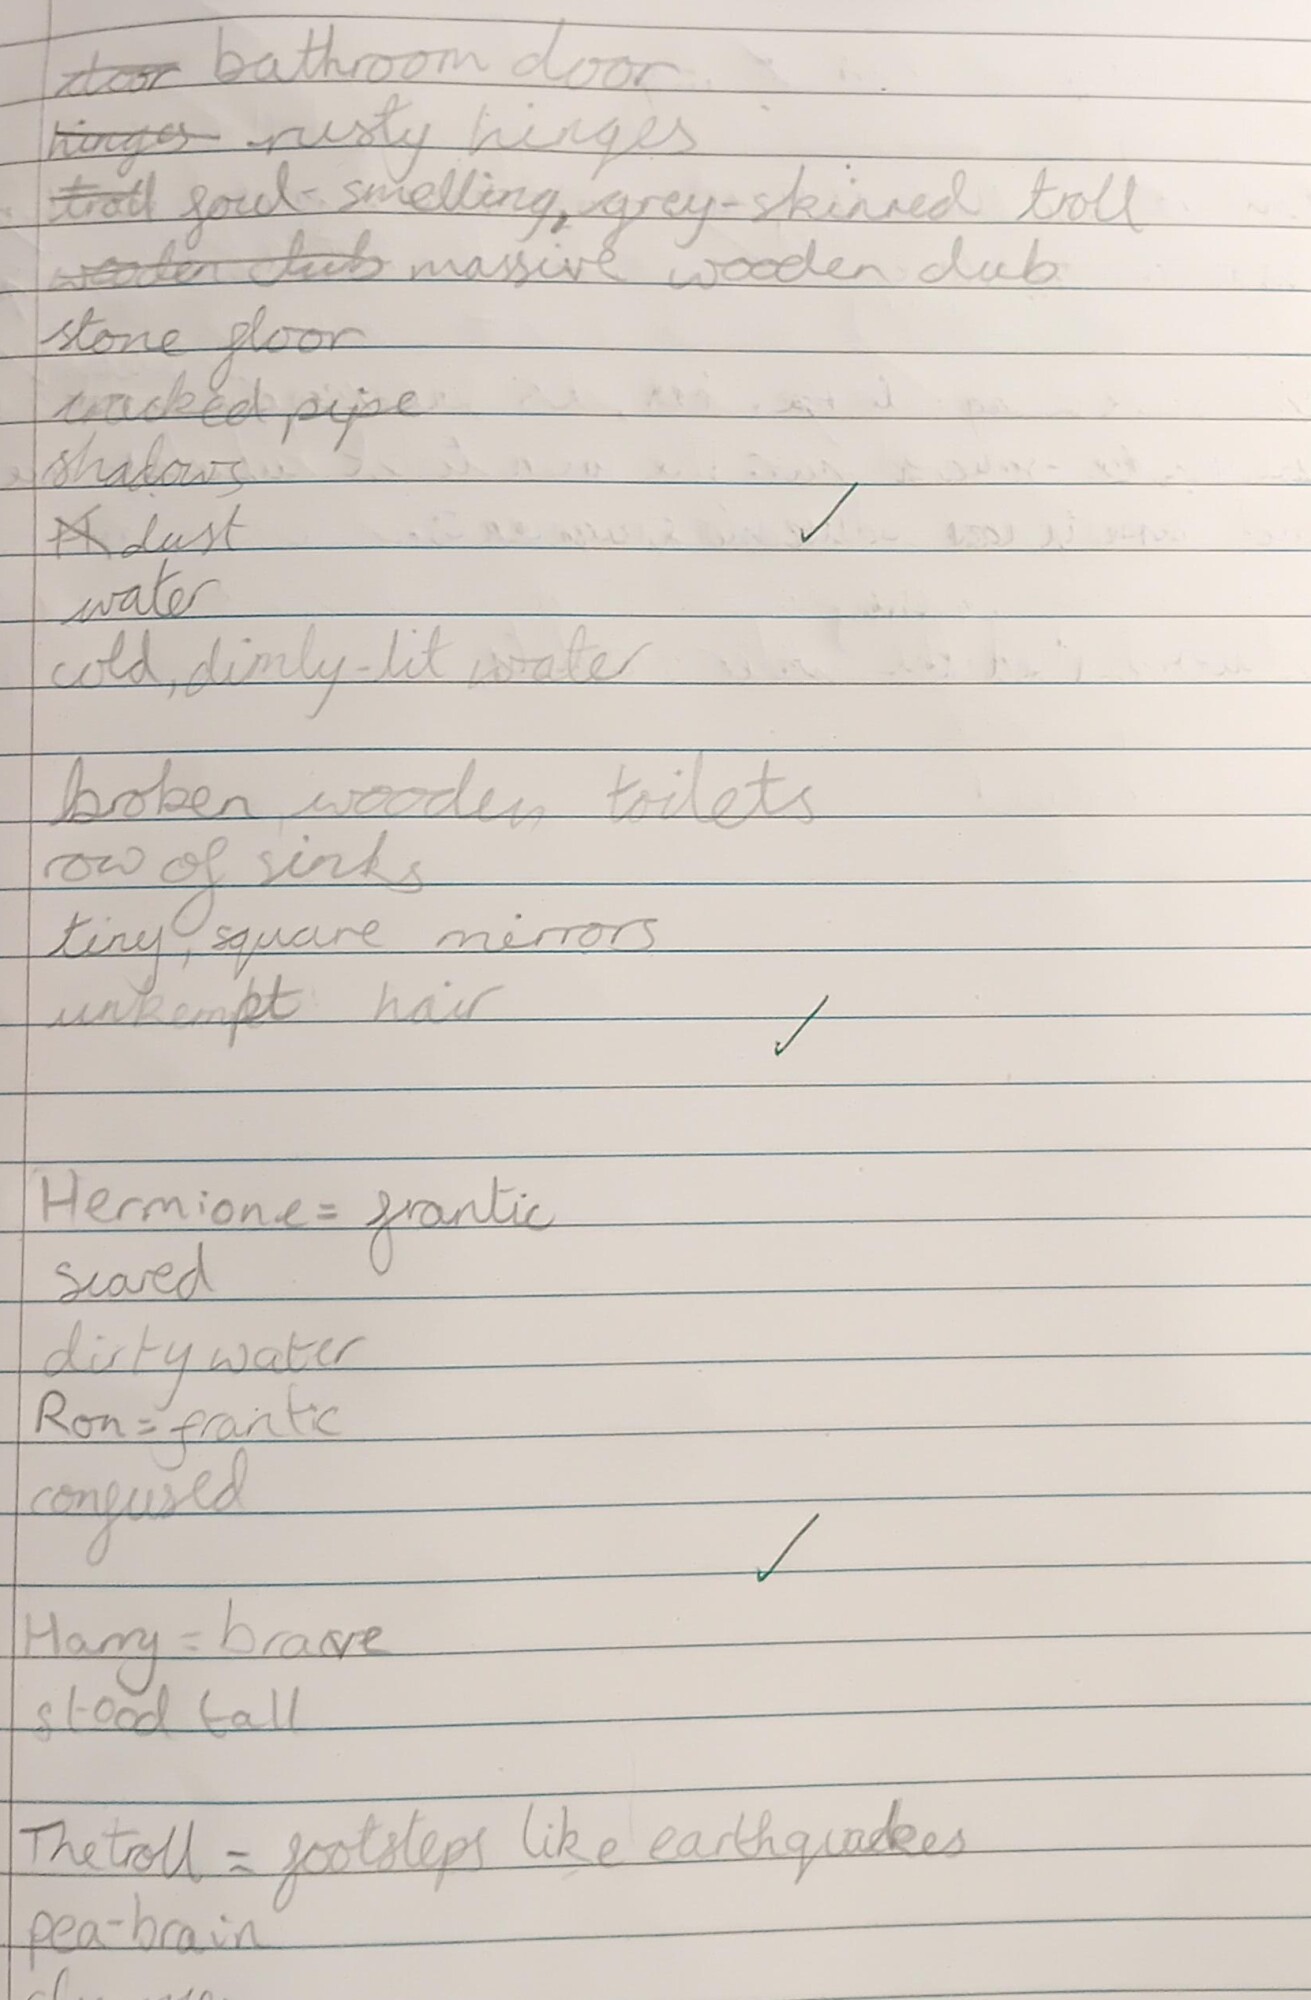 door bathroom door
hinges rusty hinges
troll foul-smelling, grey-skinned troll
wooden club massive wooden club
stone floor
cracked pipe
shadows
dust
water
cold, dimly-lit water
broken wooden toilets
row of sinks
tiny, square mirrors
unkempt hair
Hermione = frantic
scared
dirty water
Ron = frantic
confused
Harry = brave
stood tall
The troll = footsteps like earthquakes
pea-brain